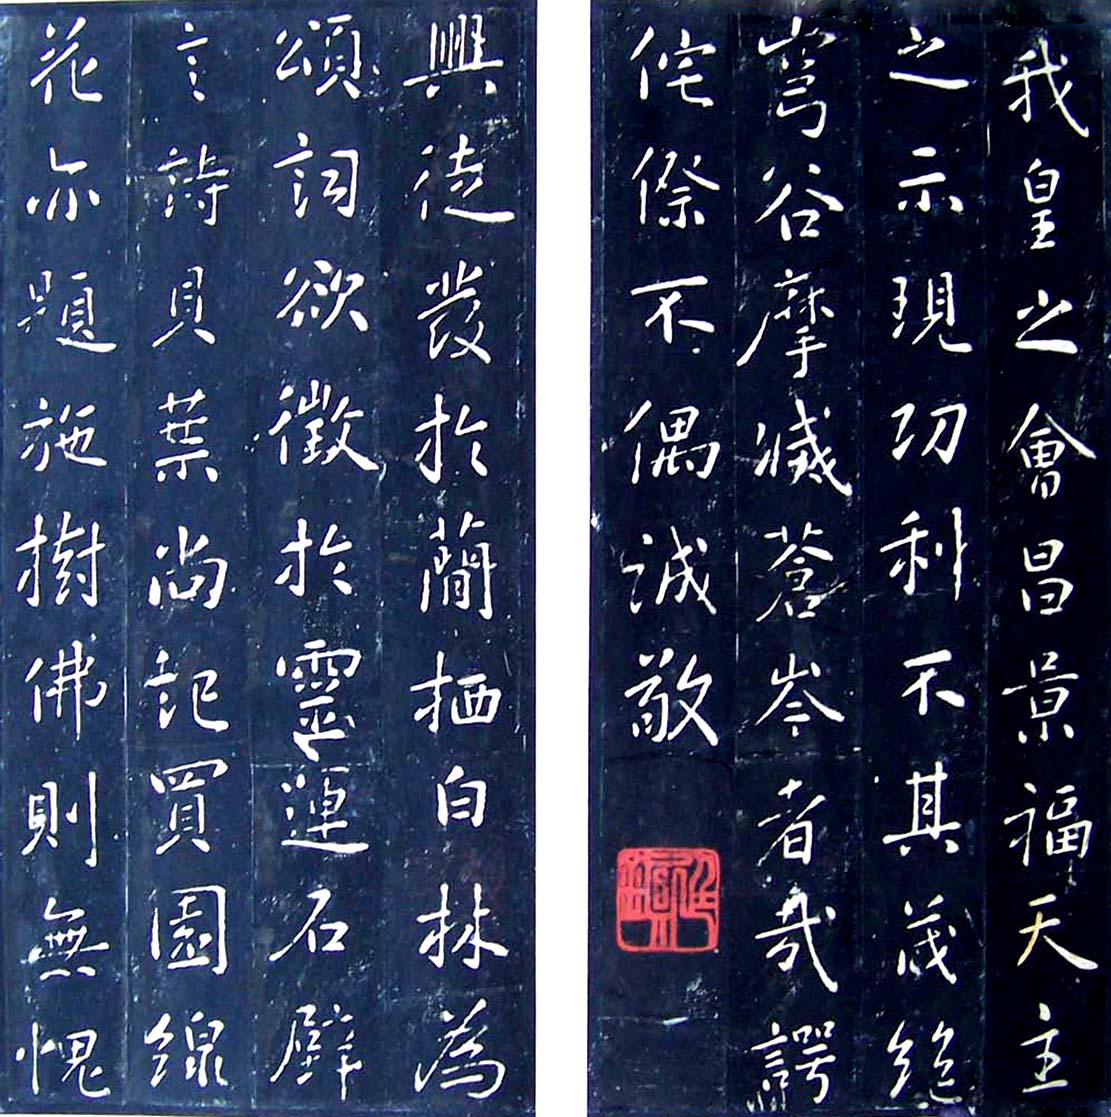 我皇之會昌景福天主
之示現功利不其茂絕
穹谷摩滅蒼岑者哉諤
侘傺不偶誠敬
興徒發於蕳栖白林為
頌詞欲徵於靈運石壁
言詩貝葉尚記買園線
花亦題施樹佛則無愧